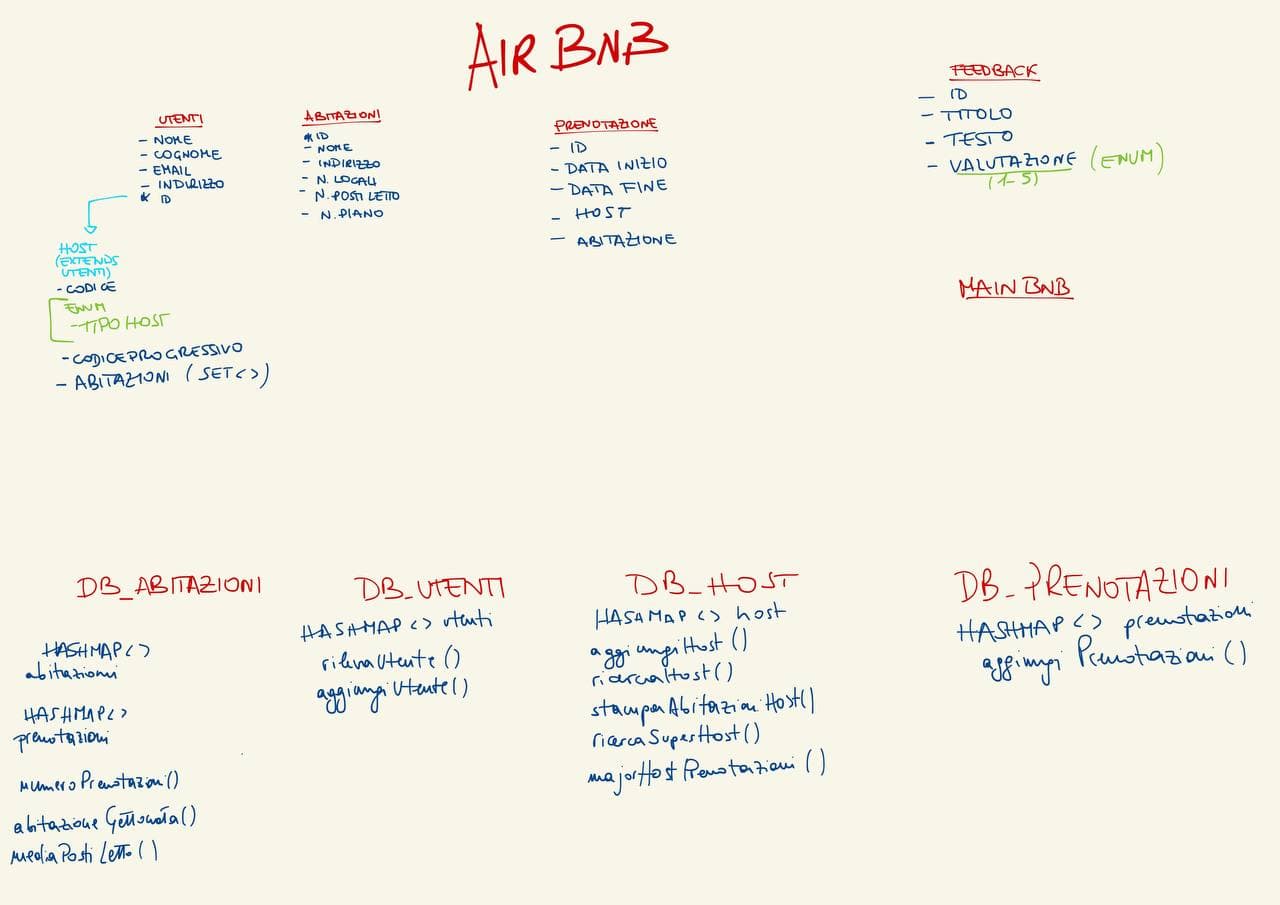 AIRBNB
UTENTI
- NOME
- COGNOME
- EMAIL
- INDIRIZZO
* ID
HOST
(EXTENDS
UTENTI)
- CODICE
ENUM
- TIPO HOST
- CODICEPROGRESSIVO
- ABITAZIONI (SET<>)
ABITAZIONI
* ID
- NOME
- INDIRIZZO
- N. LOCALI
- N. POSTI LETTO
- N. PIANO
PRENOTAZIONE
- ID
- DATA INIZIO
- DATA FINE
- HOST
- ABITAZIONE
FEEDBACK
- ID
- TITOLO
- TESTO
- VALUTAZIONE (ENUM)
(1-5)
MAIN BNB
DB_ABITAZIONI
HASHMAP<>
abitazioni
HASHMAP<>
prenotazioni
numeroPrenotazioni()
abitazione Gettonata()
mediaPosti Letto()
DB_UTENTI
HASHMAP<> utenti
rilevaUtente()
aggiungiUtente()
DB_HOST
HASHMAP<> host
aggiungiHost()
ricercaHost()
stampaAbitazioniHost()
ricercaSuperHost()
majorHost Prenotazioni()
DB_PRENOTAZIONI
HASHMAP<> prenotazioni
aggiungi Prenotazioni()